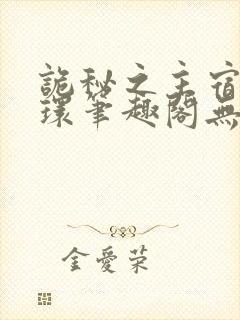 詭秘之主宿
環筆趣閣無
金愛荣